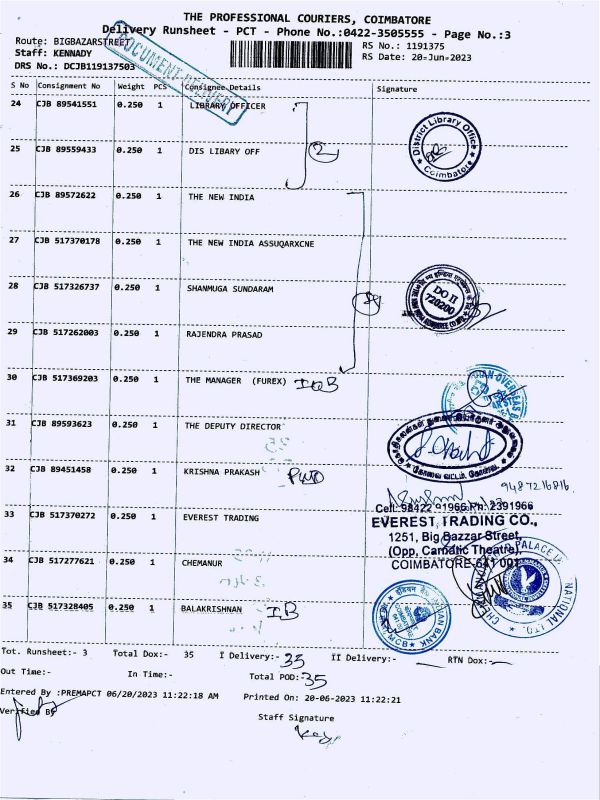 THE PROFESSIONAL COURIERS, COIMBATORE
Delivery Runsheet - PCT - Phone No.:0422-3505555 - Page No.:3
Route: BIGBAZARSTREET
RS No.: 1191375
Staff: KENNADY
RS Date: 20-Jun-2023
DRS No.: DCJB119137503
DOCUMENT DELIVERY
S No Consignment No Weight PCS Consignee Details Signature
24 CJB 89541551 0.250 1 LIBRARY OFFICER
District Library Office
Coimbatore
25 CJB 89559433 0.250 1 DIS LIBARY OFF
2
26 CJB 89572622 0.250 1 THE NEW INDIA
27 CJB 517370178 0.250 1 THE NEW INDIA ASSUQARXCNE
28 CJB 517326737 0.250 1 SHANMUGA SUNDARAM
DO II
720200
29 CJB 517262003 0.250 1 RAJENDRA PRASAD
30 CJB 517369203 0.250 1 THE MANAGER (FUREX) IOB
31 CJB 89593623 0.250 1 THE DEPUTY DIRECTOR
32 CJB 89451458 0.250 1 KRISHNA PRAKASH PWD
9487216816
Cell: 98422 91966 Ph: 2391966
33 CJB 517370272 0.250 1 EVEREST TRADING
EVEREST TRADING CO.,
1251, Big Bazzar Street,
(Opp, Carnatic Theatre),
COIMBATORE-641 001
34 CJB 517277621 0.250 1 CHEMANUR
35 CJB 517328405 0.250 1 BALAKRISHNAN IB
INDIAN BANK
Tot. Runsheet:- 3 Total Dox:- 35 I Delivery:- 35 II Delivery:- RTN Dox:-
Out Time:- In Time:- Total POD: 35
Entered By :PREMAPCT 06/20/2023 11:22:18 AM Printed On: 20-06-2023 11:22:21
Verified By
Staff Signature